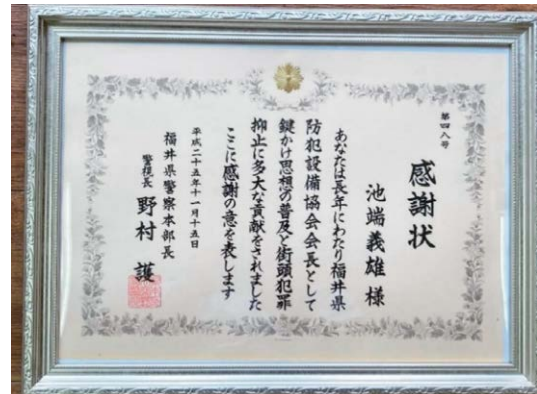 第四八号
感謝状
池端義雄様
あなたは長年にわたり福井県
防犯設備協会会長として
鍵かけ思想の普及と街頭犯罪
抑止に多大な貢献をされました
ここに感謝の意を表します
平成二十五年十一月十五日
福井県警察本部長
警視長 野村 護